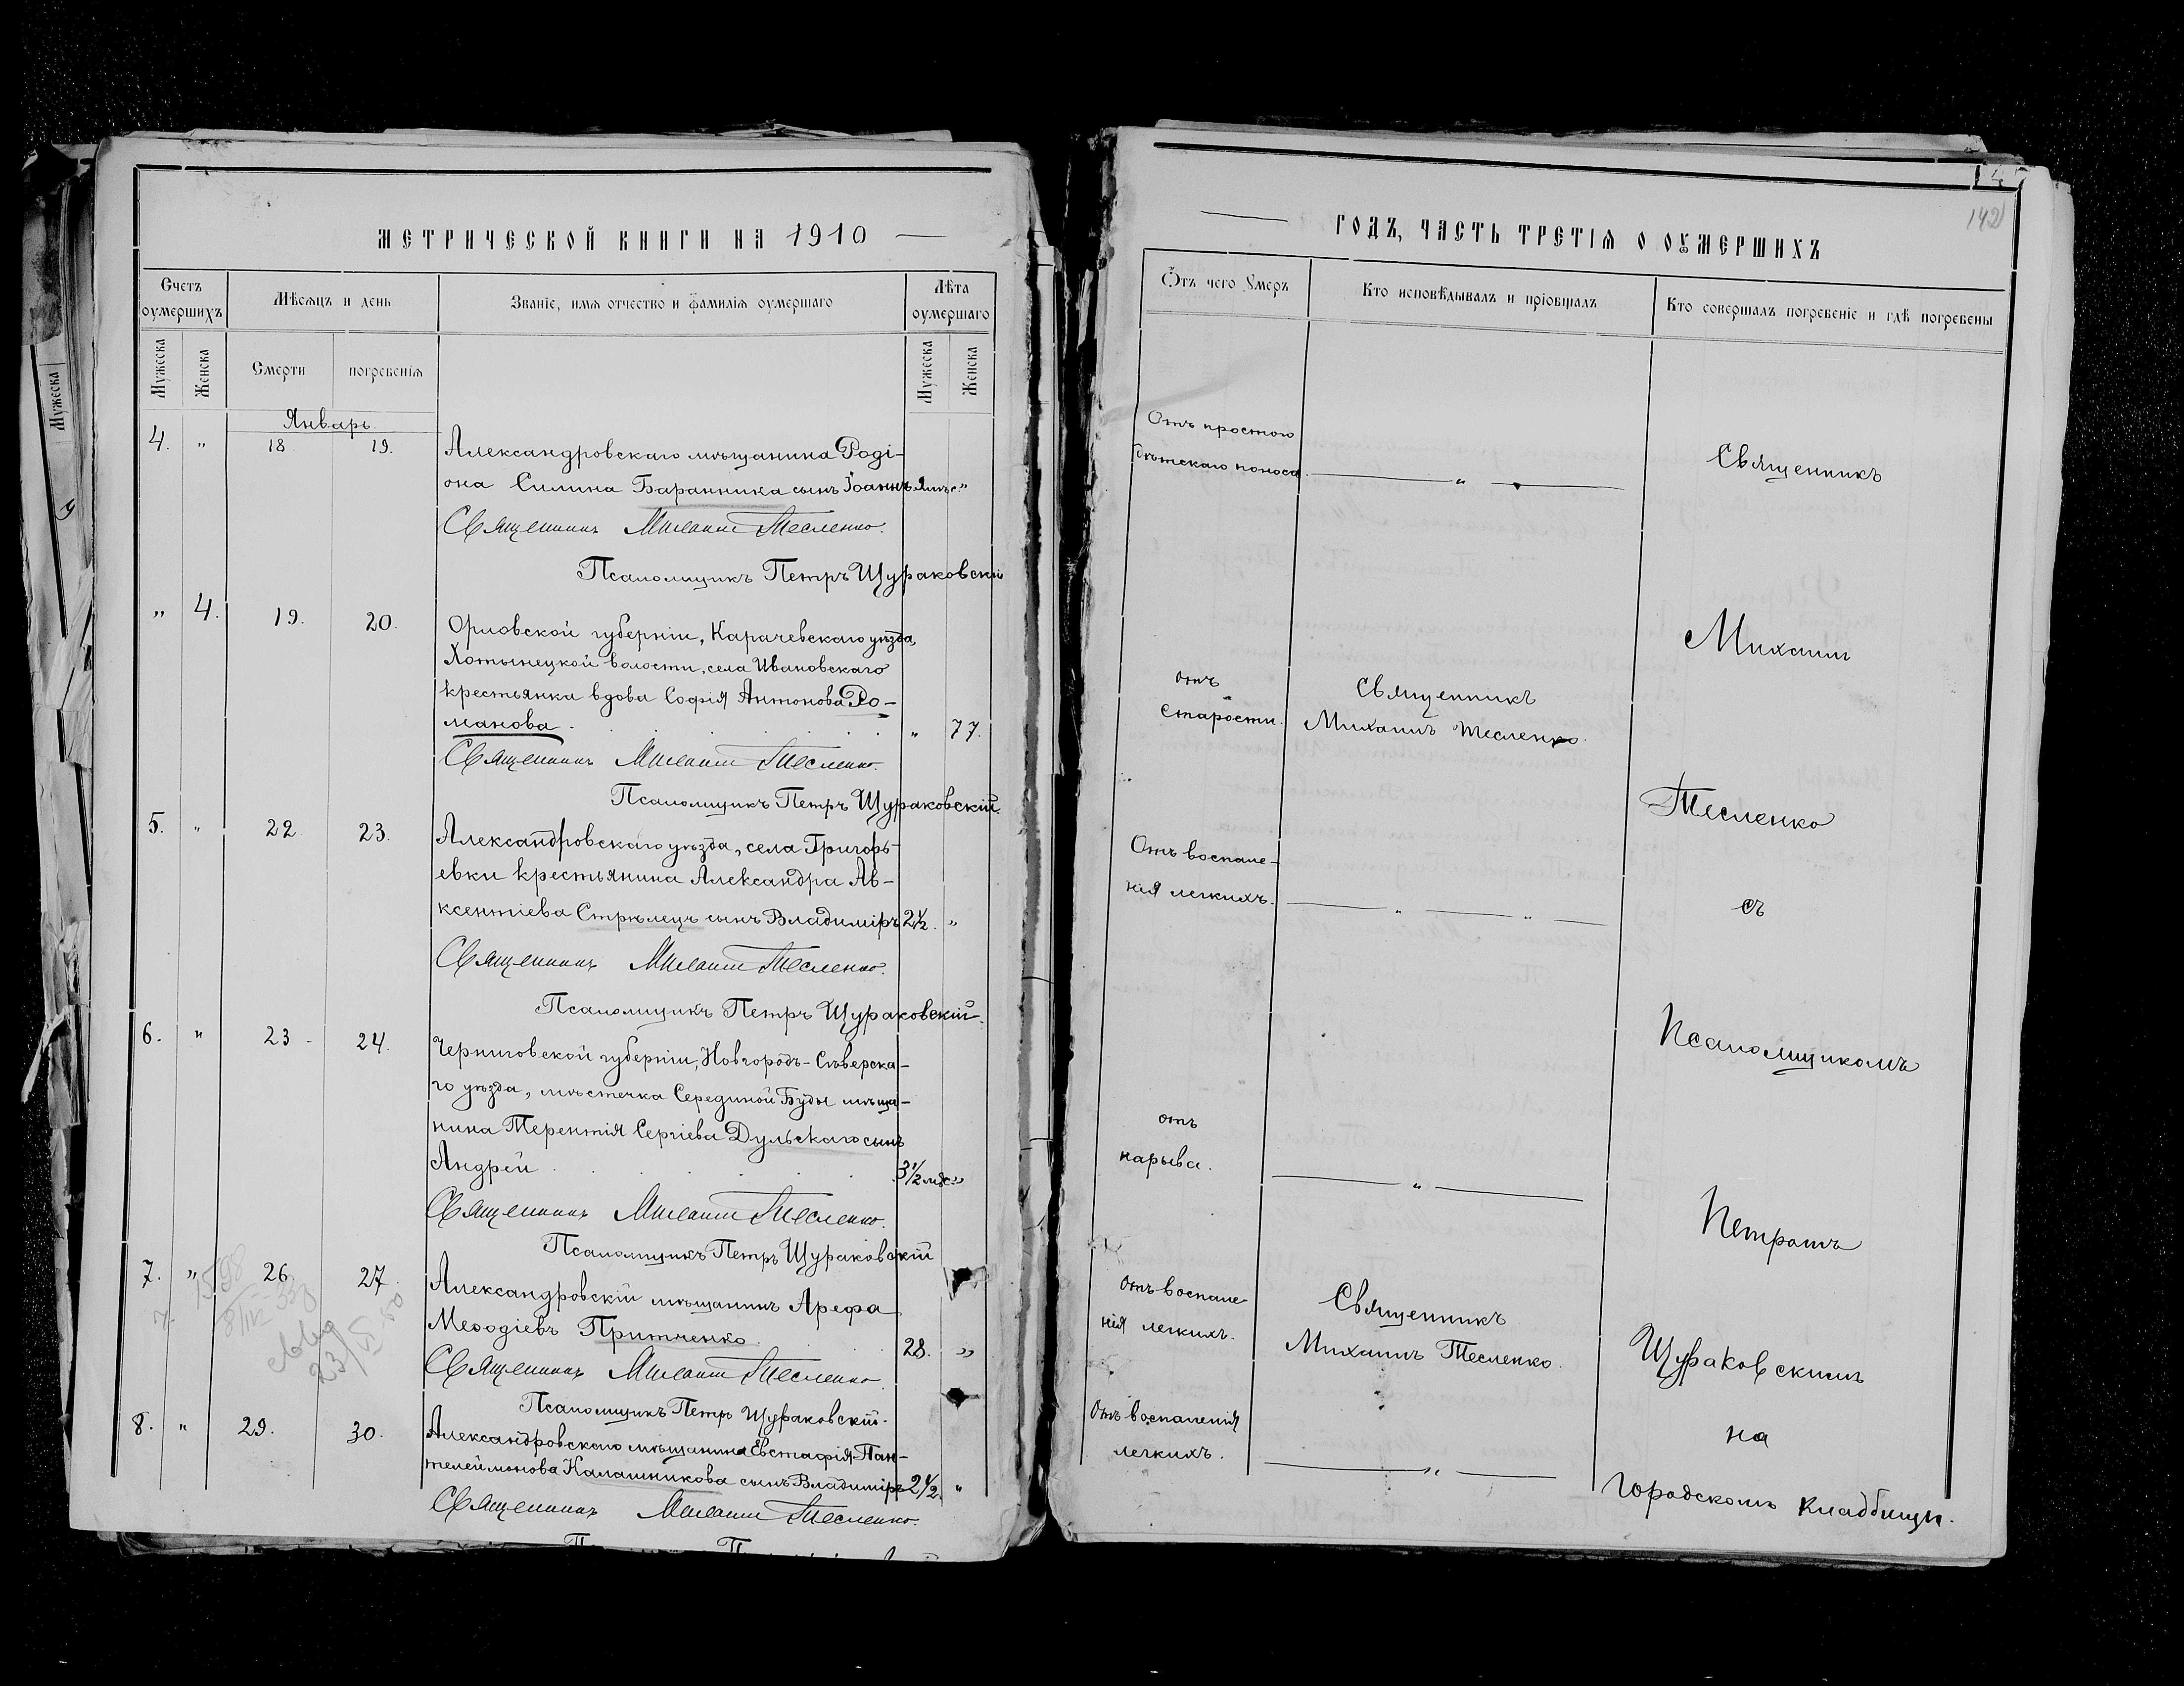 МЕТРИЧЕСКОЙ КНИГИ НА 1910
Счетъ оумершихъ
Мѣсяцъ и день
Званіе, имя отчество и фамилія оумершаго
Лѣта оумершаго
Мужеска
Женска
Смерти
погребенія
Мужеска
Женска
Январь
4. " 18 19.
Александровскаго мѣщанина Роді-
она Силина Баранника сынъ Іоаннъ "
Священникъ Михаилъ Тесленко.
Псаломщикъ Петръ Щураковскій
" 4. 19. 20.
Орловской губерніи, Карачевскаго уѣзда,
Хотынецкой волости, села Ивановскаго
крестьянка вдова Софія Антонова Ро-
манова. " 77.
Священникъ Михаилъ Тесленко.
Псаломщикъ Петръ Щураковскій.
5. " 22. 23.
Александровскаго уѣзда, села Григорь-
евки крестьянина Александра Ав-
ксентіева Стрѣлецъ сынъ Владиміръ 2½. "
Священникъ Михаилъ Тесленко.
Псаломщикъ Петръ Щураковскій.
6. " 23. 24.
Черниговской губерніи, Новгородъ-Сѣверска-
го уѣзда, мѣстечка Серединой Буды мѣща-
нина Терентія Сергіева Дульскаго сынъ
Андрей 3½ мѣс. "
Священникъ Михаилъ Тесленко.
Псаломщикъ Петръ Щураковскій
7. " 26. 27.
Александровскій мѣщанинъ Арефа
Меѳодіевъ Притченко. 28. "
Священникъ Михаилъ Тесленко.
Псаломщикъ Петръ Щураковскій.
8. " 29. 30.
Александровскаго мѣщанина Евстафія Пан-
телеймонова Калашникова сынъ Владиміръ 2½. "
Священникъ Михаилъ Тесленко.
142
ГОДЪ, ЧАСТЬ ТРЕТІЯ О ОУМЕРШИХЪ
Отъ чего Умеръ
Кто исповѣдывалъ и пріобщалъ
Кто совершалъ погребеніе и гдѣ погребены
Отъ простого
дѣтскаго поноса. "
отъ
старости.
Священникъ
Михаилъ Тесленко.
Отъ воспале-
нія легкихъ. " "
отъ
нарыва. "
Отъ воспале-
нія легкихъ.
Священникъ
Михаилъ Тесленко.
Отъ воспаленія
легкихъ. "
Священникъ
Михаилъ
Тесленко
съ
Псаломщикомъ
Петромъ
Щураковскимъ
на
Городскомъ кладбищѣ.